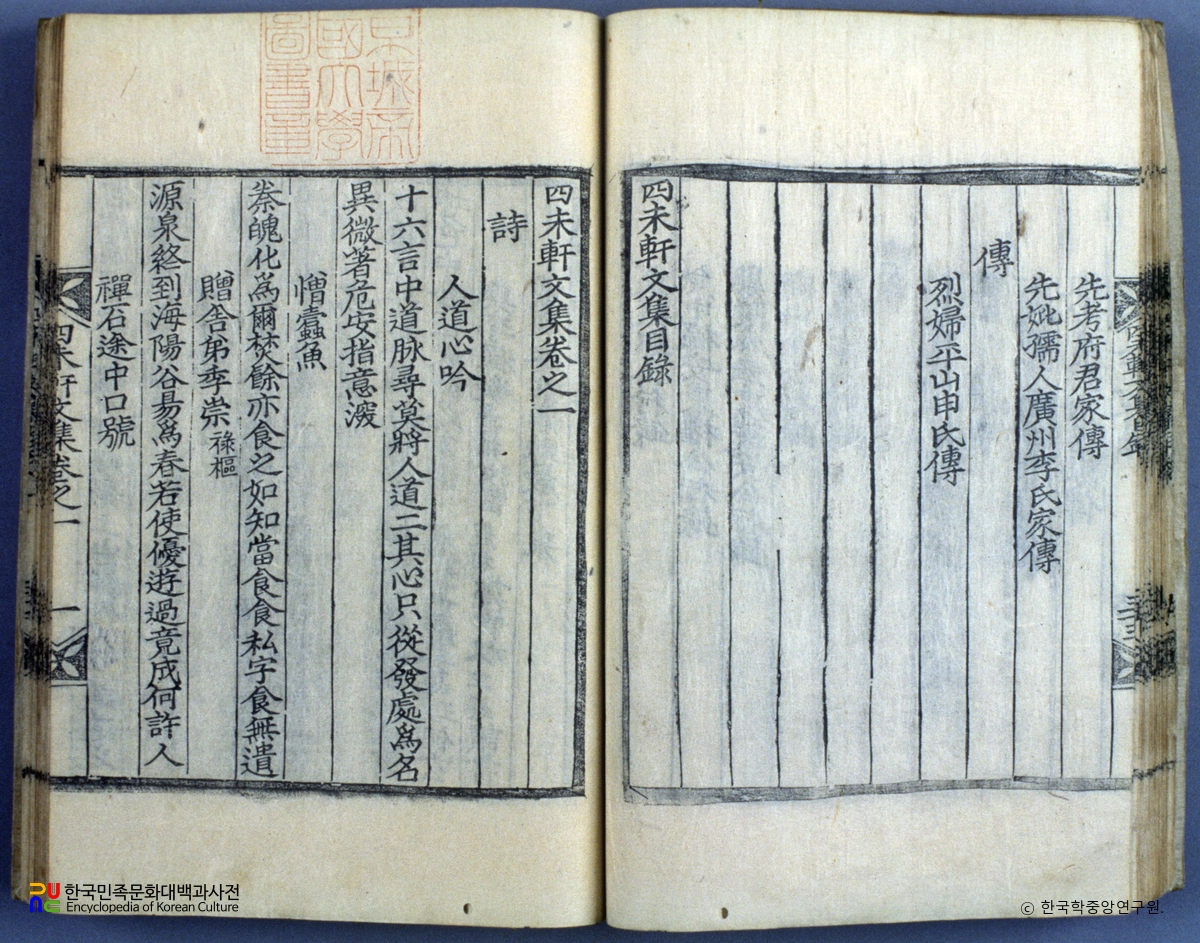 四未軒文集目錄
先考府君家傳
先妣孺人廣州李氏家傳
傳
烈婦平山申氏傳
四未軒文集目錄
京城帝
國大學
圖書章
四未軒文集卷之一
詩
人道心吟
十六言中道脉尋莫將人道二其心只從發處爲名
異微著危安指意深
憎蠹魚
秦魄化爲爾焚餘亦食之如知當食食私字食無遺
贈舍弟季崇 祿樞
源泉終到海陽谷易爲春若使優遊過竟成何許人
禪石途中口號
四未軒文集卷之一
一
한국민족문화대백과사전
Encyclopedia of Korean Culture
ⓒ 한국학중앙연구원.